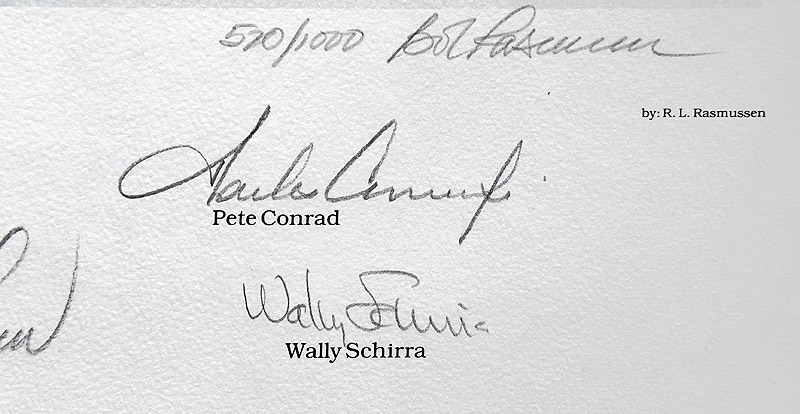 520/1000 Bob Rasmussen
by: R. L. Rasmussen
Charles Conrad Jr.
Pete Conrad
Wally Schirra
Wally Schirra